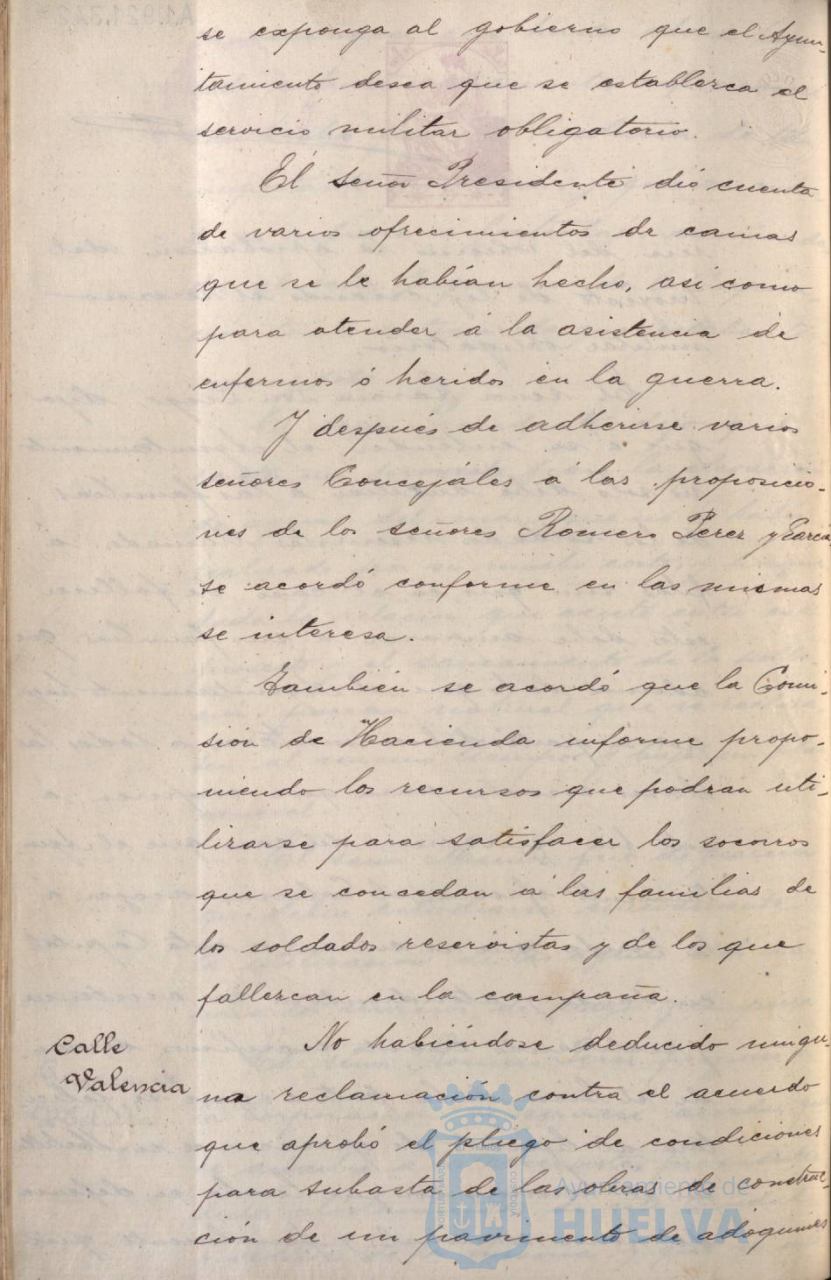 se exponga al gobierno que el Ayun-
tamiento desea que se establezca el
servicio militar obligatorio.
El señor Presidente dió cuenta
de varios ofrecimientos de camas
que se le habían hecho, así como
para atender á la asistencia de
enfermos ó heridos en la guerra.
Y después de adherirse varios
señores Concejales á las proposicio-
nes de los señores Romero Perez y Garcia
se acordó conforme en las mismas
se interesa.
También se acordó que la Comi-
sión de Hacienda informe propo-
niendo los recursos que podran uti-
lizarse para satisfacer los socorros
que se concedan á las familias de
los soldados reservistas y de los que
fallezcan en la campaña.
Calle
Valencia
No habiéndose deducido ningu-
na reclamación contra el acuerdo
que aprobó el pliego de condiciones
para subasta de las obras de construc-
ción de un pavimento de adoquines
Ayuntamiento de
HUELVA